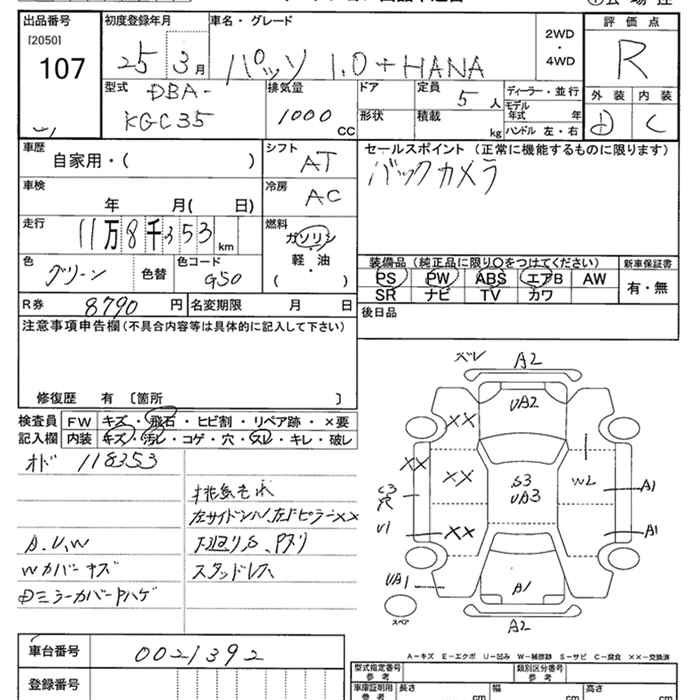 出品番号
[2050]
107
初度登録年月
25 3月
車名・グレード
パッソ 1.0 +HANA
2WD
・
4WD
評価点
R
型式
DBA-
KGC35
排気量
1000 CC
ドア
形状
定員
5 人
積載
kg
ディーラー・並行
モデル
年式 年
ハンドル 左・右
外装 内装
D C
車歴
自家用・( )
シフト
AT
セールスポイント (正常に機能するものに限ります)
バックカメラ
車検
年 月( 日)
冷房
AC
走行
11万8千353 km
燃料
ガソリン
軽油
・
( )
色
グリーン
色替
色コード
G50
装備品 (純正品に限り○をつけてください)
PS PW ABS エアB AW
SR ナビ TV カワ
新車保証書
有・無
R券
8790 円
名変期限 月 日
後日品
注意事項申告欄(不具合内容等は具体的に記入して下さい)
修復歴 有 〔箇所 〕
検査員
記入欄
FW キズ・飛石・ヒビ割・リペア跡・×要
内装 キズ・汚レ・コゲ・穴・スレ・キレ・破レ
オド 118353
排気モレ
左サイドシル、左ドピラーXX
A.U.W
下廻りS、Pヌリ
Wカバーキズ
スタッドレス
Dミラーカバーハゲ
A2
UA2
XX
XX
XX
XX
S3
UA3
W2
A1
A1
C3
穴
U1
UA1
A1
スペア
A2
A-キズ E-エクボ U-凹み W-補修跡 S-サビ C-腐食 XX-交換済
車台番号
0021392
登録番号
型式指定番号
参考
類別区分番号
参考
車庫証明用
参考
長さ cm
幅 cm
高さ cm